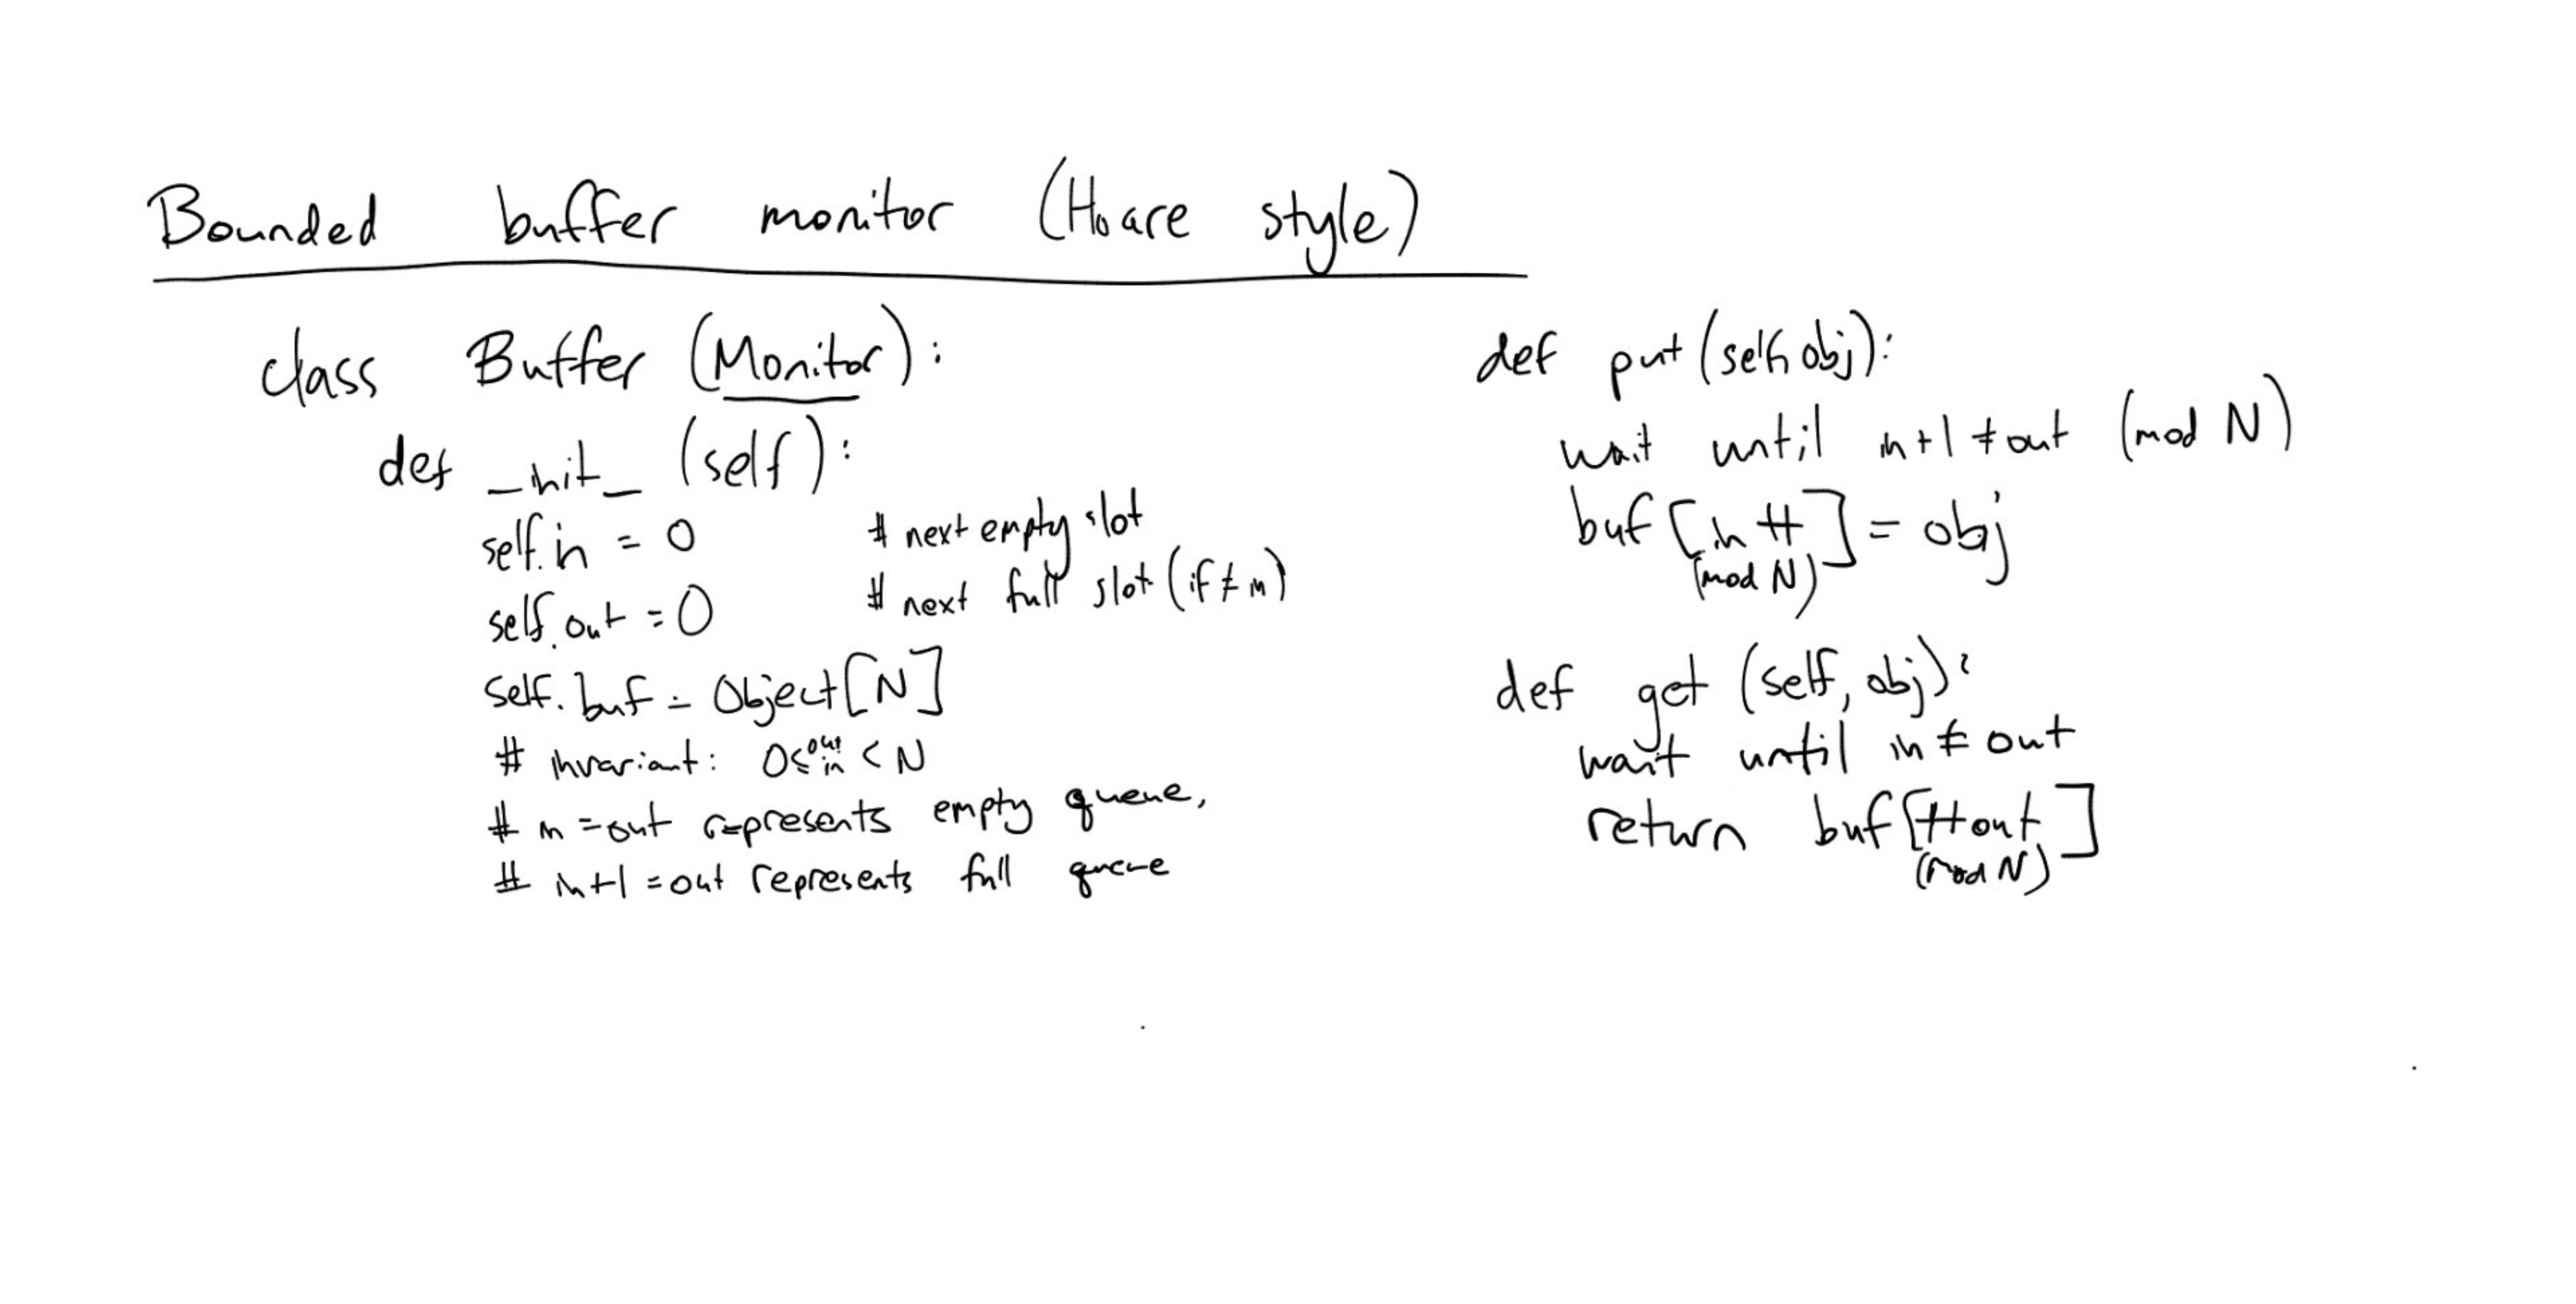 Bounded buffer monitor (Hoare style)
class Buffer (Monitor):
def _init_ (self):
self.in = 0 # next empty slot
self.out = 0 # next full slot (if ≠ in)
self.buf = Object[N]
# invariant: 0 ≤ out in < N
# in = out represents empty queue,
# in+1 = out represents full queue
def put (self, obj):
wait until in+1 ≠ out (mod N)
buf [in ++] = obj
(mod N)
def get (self, obj):
wait until in ≠ out
return buf [++out]
(mod N)